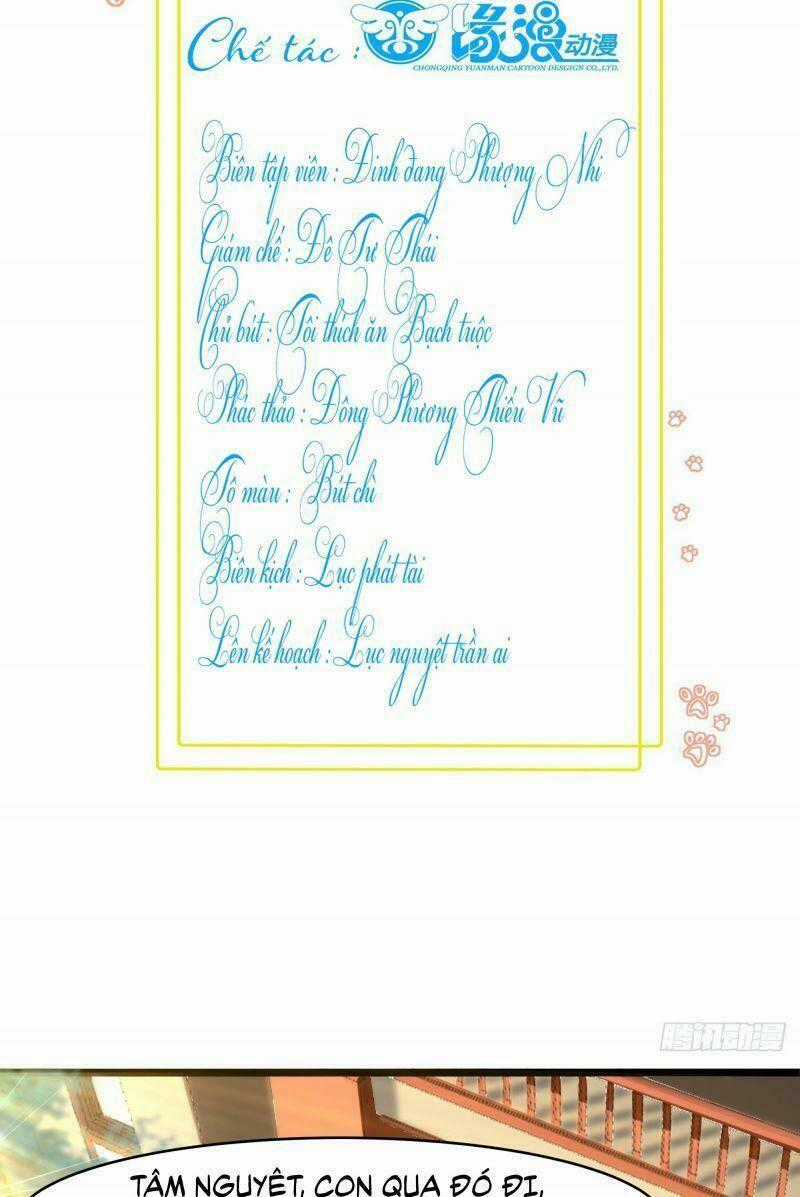 Chế tác : 缘漫动漫
CHONGQING YUANMAN CARTOON DESGIGN CO.,LTD.
Biên tập viên : Đinh đang Phượng Nhi
Giám chế : Đê Tư Thái
Chủ bút : Tôi thích ăn Bạch tuộc
Phác thảo : Đông Phương Thiếu Vũ
Tô màu : Bút chì
Biên kịch : Lục phát tài
Lên kế hoạch : Lục nguyệt trần ai
腾讯动漫
TÂM NGUYỆT, CON QUA ĐÓ ĐI,